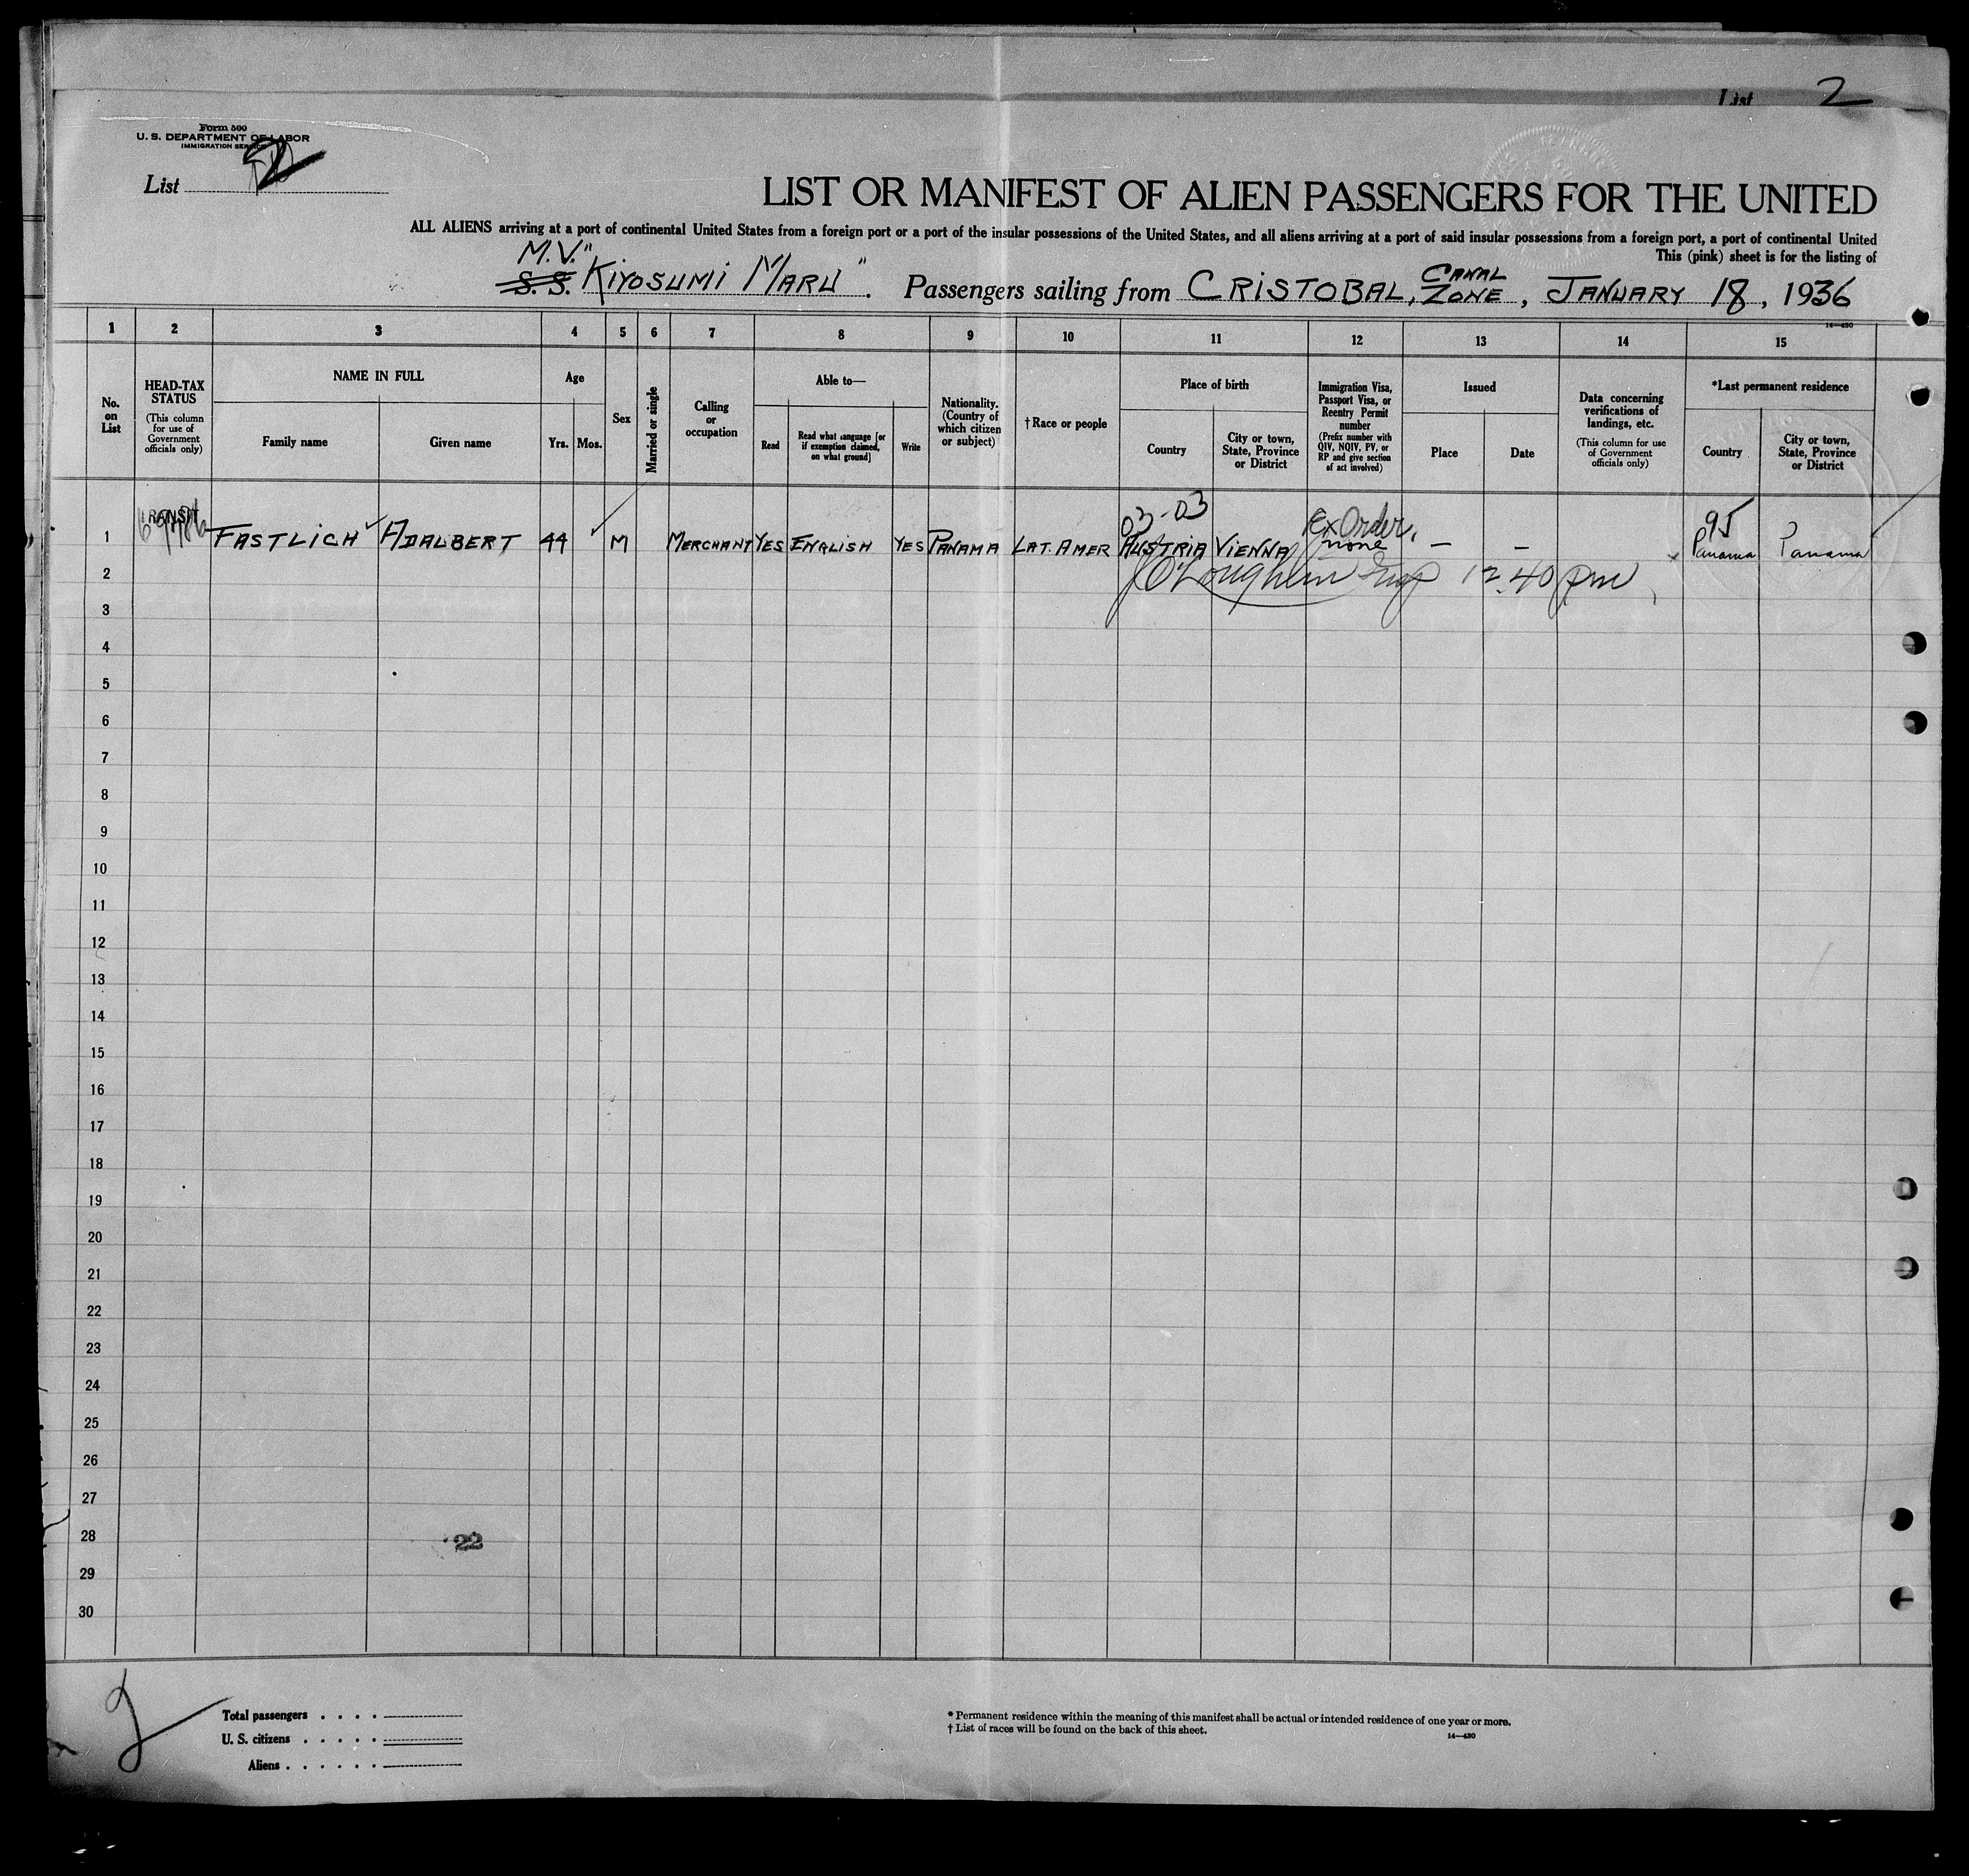 List 2
Form 500
U. S. DEPARTMENT OF LABOR
IMMIGRATION SERVICE
List 2
LIST OR MANIFEST OF ALIEN PASSENGERS FOR THE UNITED
ALL ALIENS arriving at a port of continental United States from a foreign port or a port of the insular possessions of the United States, and all aliens arriving at a port of said insular possessions from a foreign port, a port of continental United
This (pink) sheet is for the listing of
M.V. "
S. S. KIYOSUMI MARU". Passengers sailing from CRISTOBAL, CANAL ZONE, JANUARY 18, 1936
14—430
1 2 3 4 5 6 7 8 9 10 11 12 13 14 15
No. on List
HEAD-TAX STATUS
(This column for use of Government officials only)
NAME IN FULL
Family name
Given name
Age
Yrs.
Mos.
Sex
Married or single
Calling or occupation
Able to—
Read
Read what language [or if exemption claimed, on what ground]
Write
Nationality. (Country of which citizen or subject)
† Race or people
Place of birth
Country
City or town, State, Province or District
Immigration Visa, Passport Visa, or Reentry Permit number
(Prefix number with QIV, NQIV, PV, or RP and give section of act involved)
Issued
Place
Date
Data concerning verifications of landings, etc.
(This column for use of Government officials only)
*Last permanent residence
Country
City or town, State, Province or District
03-03 Ex Order, 95
1 TRANSIT FASTLICH ADALBERT 44 M MERCHANT YES ENGLISH YES PANAMA LAT. AMER AUSTRIA VIENNA none – – Panama Panama
2 O'Loughlin Insp 12.40 pm
3
4
5
6
7
8
9
10
11
12
13
14
15
16
17
18
19
20
21
22
23
24
25
26
27
28 22
29
30
2
Total passengers . . . .
U. S. citizens . . . . .
Aliens . . . . . .
* Permanent residence within the meaning of this manifest shall be actual or intended residence of one year or more.
† List of races will be found on the back of this sheet.
14—430